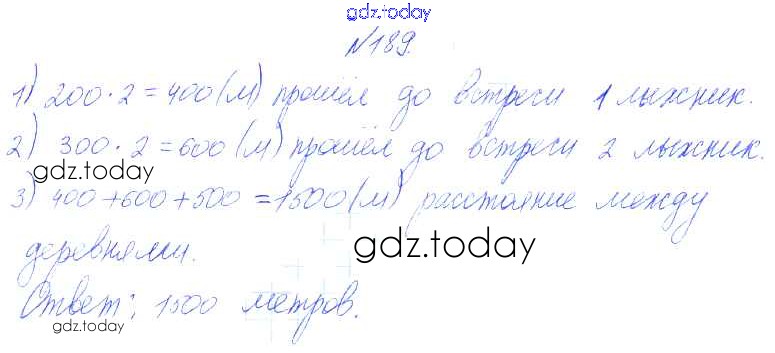 gdz.today
№189.
1) 200·2=400(м) прошёл до встречи 1 лыжник.
2) 300·2=600(м) прошёл до встречи 2 лыжник.
gdz.today
3) 400+600+500=1500(м) расстояние между
деревнями.
gdz.today
Ответ: 1500 метров.
gdz.today